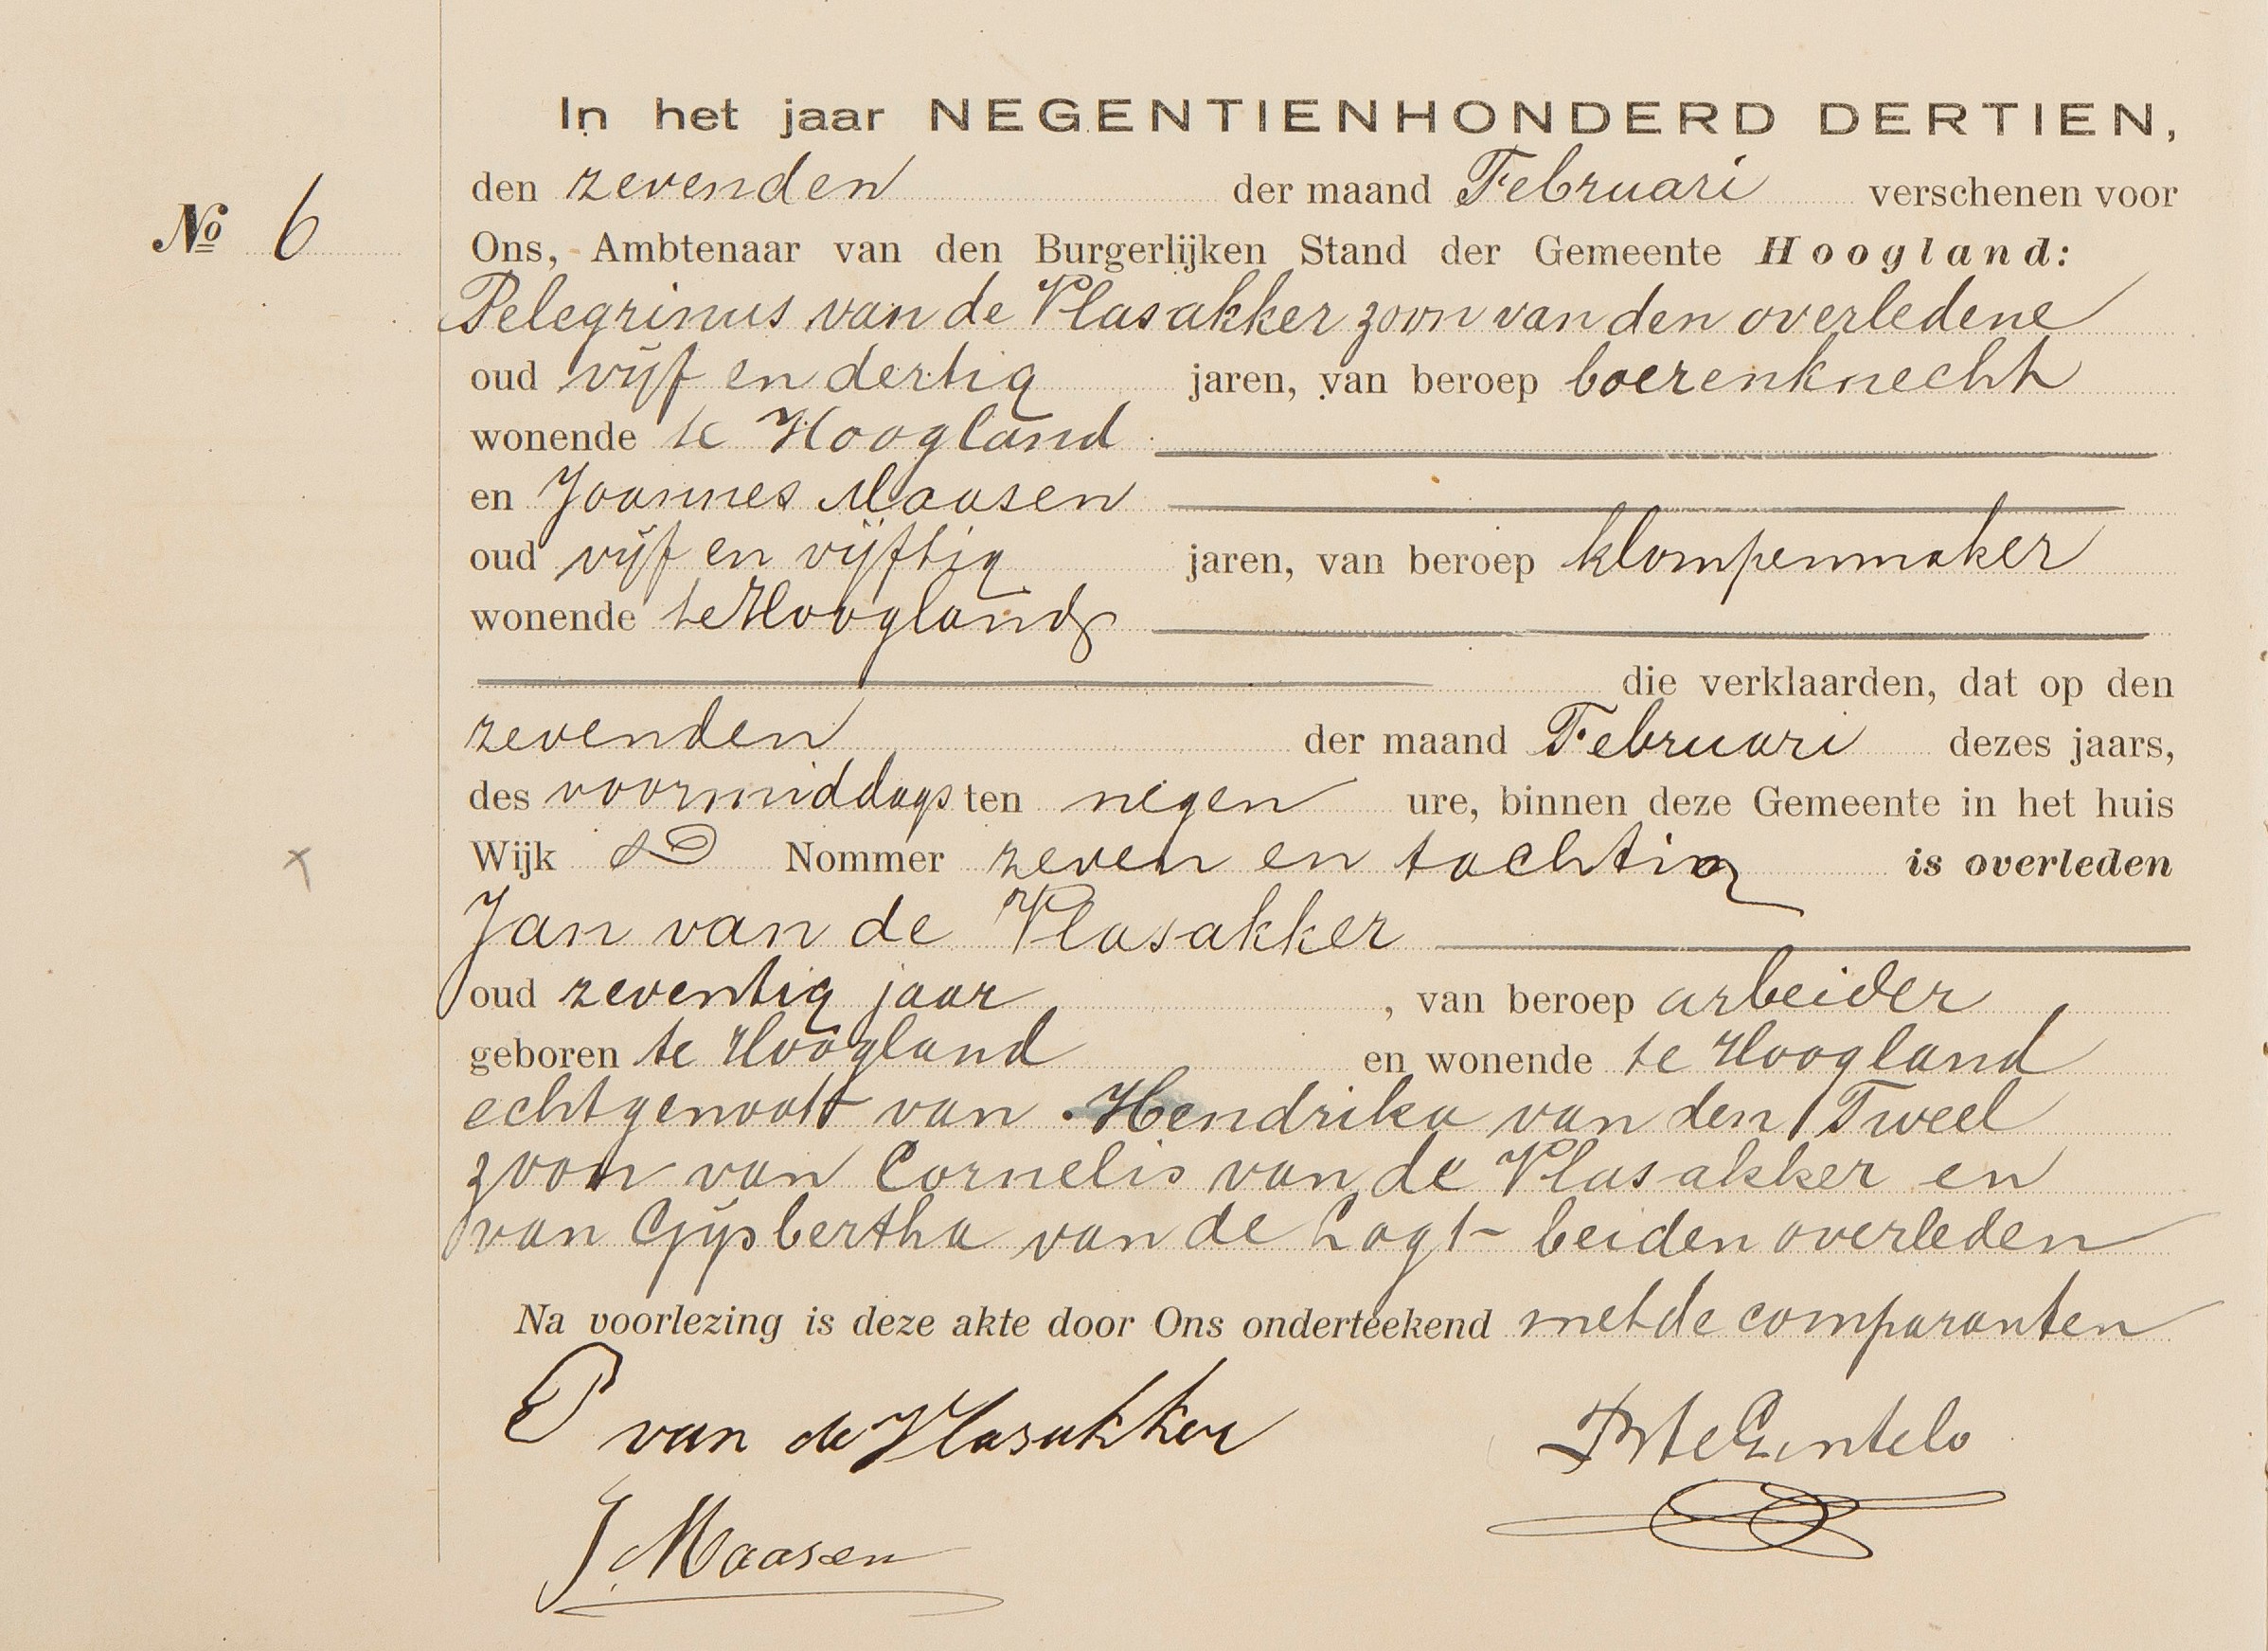 In het jaar NEGENTIENHONDERD DERTIEN,
den zevenden der maand Februari verschenen voor
No 6
Ons, Ambtenaar van den Burgerlijken Stand der Gemeente Hoogland:
Pelegrinus van de Vlasakker zoon van den overledene
oud vijf en dertig jaren, van beroep boerenknecht
wonende te Hoogland
en Joannes Maasen
oud vijf en vijftig jaren, van beroep klompenmaker
wonende te Hoogland
die verklaarden, dat op den
zevenden der maand Februari dezes jaars,
des voormiddags ten negen ure, binnen deze Gemeente in het huis
Wijk D Nommer zeven en tachtig is overleden
Jan van de Vlasakker
oud zeventig jaar , van beroep arbeider
geboren te Hoogland en wonende te Hoogland
echtgenoot van Hendrika van den Tweel
zoon van Cornelis van de Vlasakker en
van Gijsbertha van de Lagt beiden overleden
Na voorlezing is deze akte door Ons onderteekend met de comparanten
P van de Vlasakker
J. Maasen